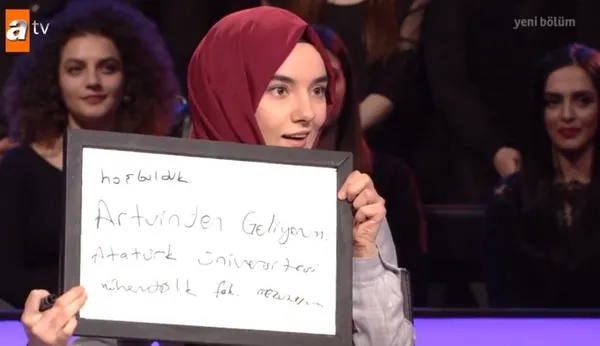 atv
yeni bölüm
hoşbulduk
Artvinden Geliyorum.
Atatürk üniversitesi
mühendislik fak. mezunuyum